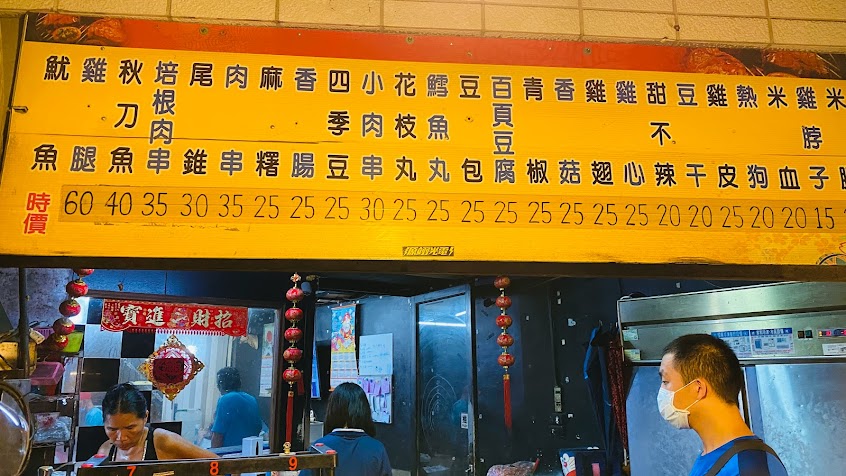 魷魚 時價
雞腿 60
秋刀魚 40
培根肉串 35
尾錐 30
肉串 35
麻糬 25
香腸 25
四季豆 25
小肉串 30
花枝丸 25
鱈魚丸 25
豆包 25
百頁豆腐 25
青椒 25
香菇 25
雞翅 25
雞心 25
甜不辣 20
豆干 20
雞皮 25
熱狗 20
米血 20
雞脖子 15
米
招財進寶
7 8 9